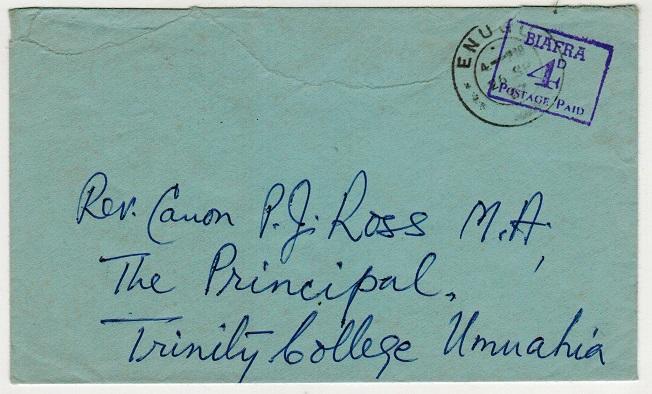 ENUGU
BIAFRA
4D
POSTAGE PAID
Rev. Canon P. J. Ross M.A,
The Principal,
Trinity College Umuahia